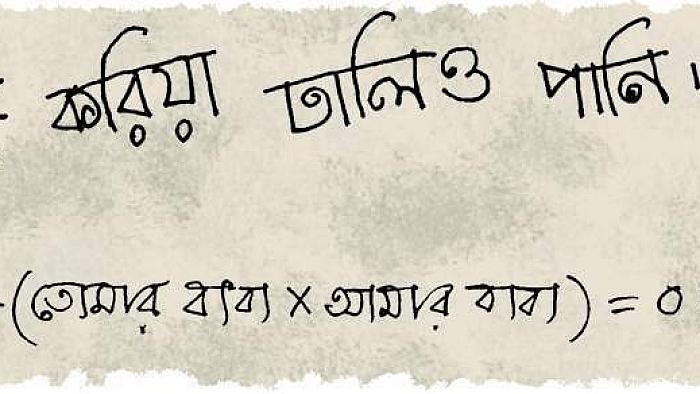 করিয়া ঢালিও পানি।
(তোমার বাবা × আমার বাবা) = ০